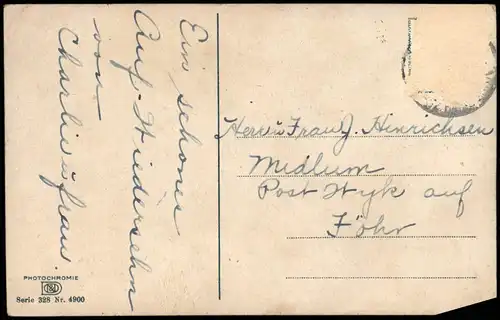 Ein schönes
Auf-Wiedersehn
von
Charlie u frau.
Herrn u Frau J. Hinrichsen
Midlum
Post Wyk auf
Föhr
PHOTOCHROMIE
Serie 328 Nr. 4900